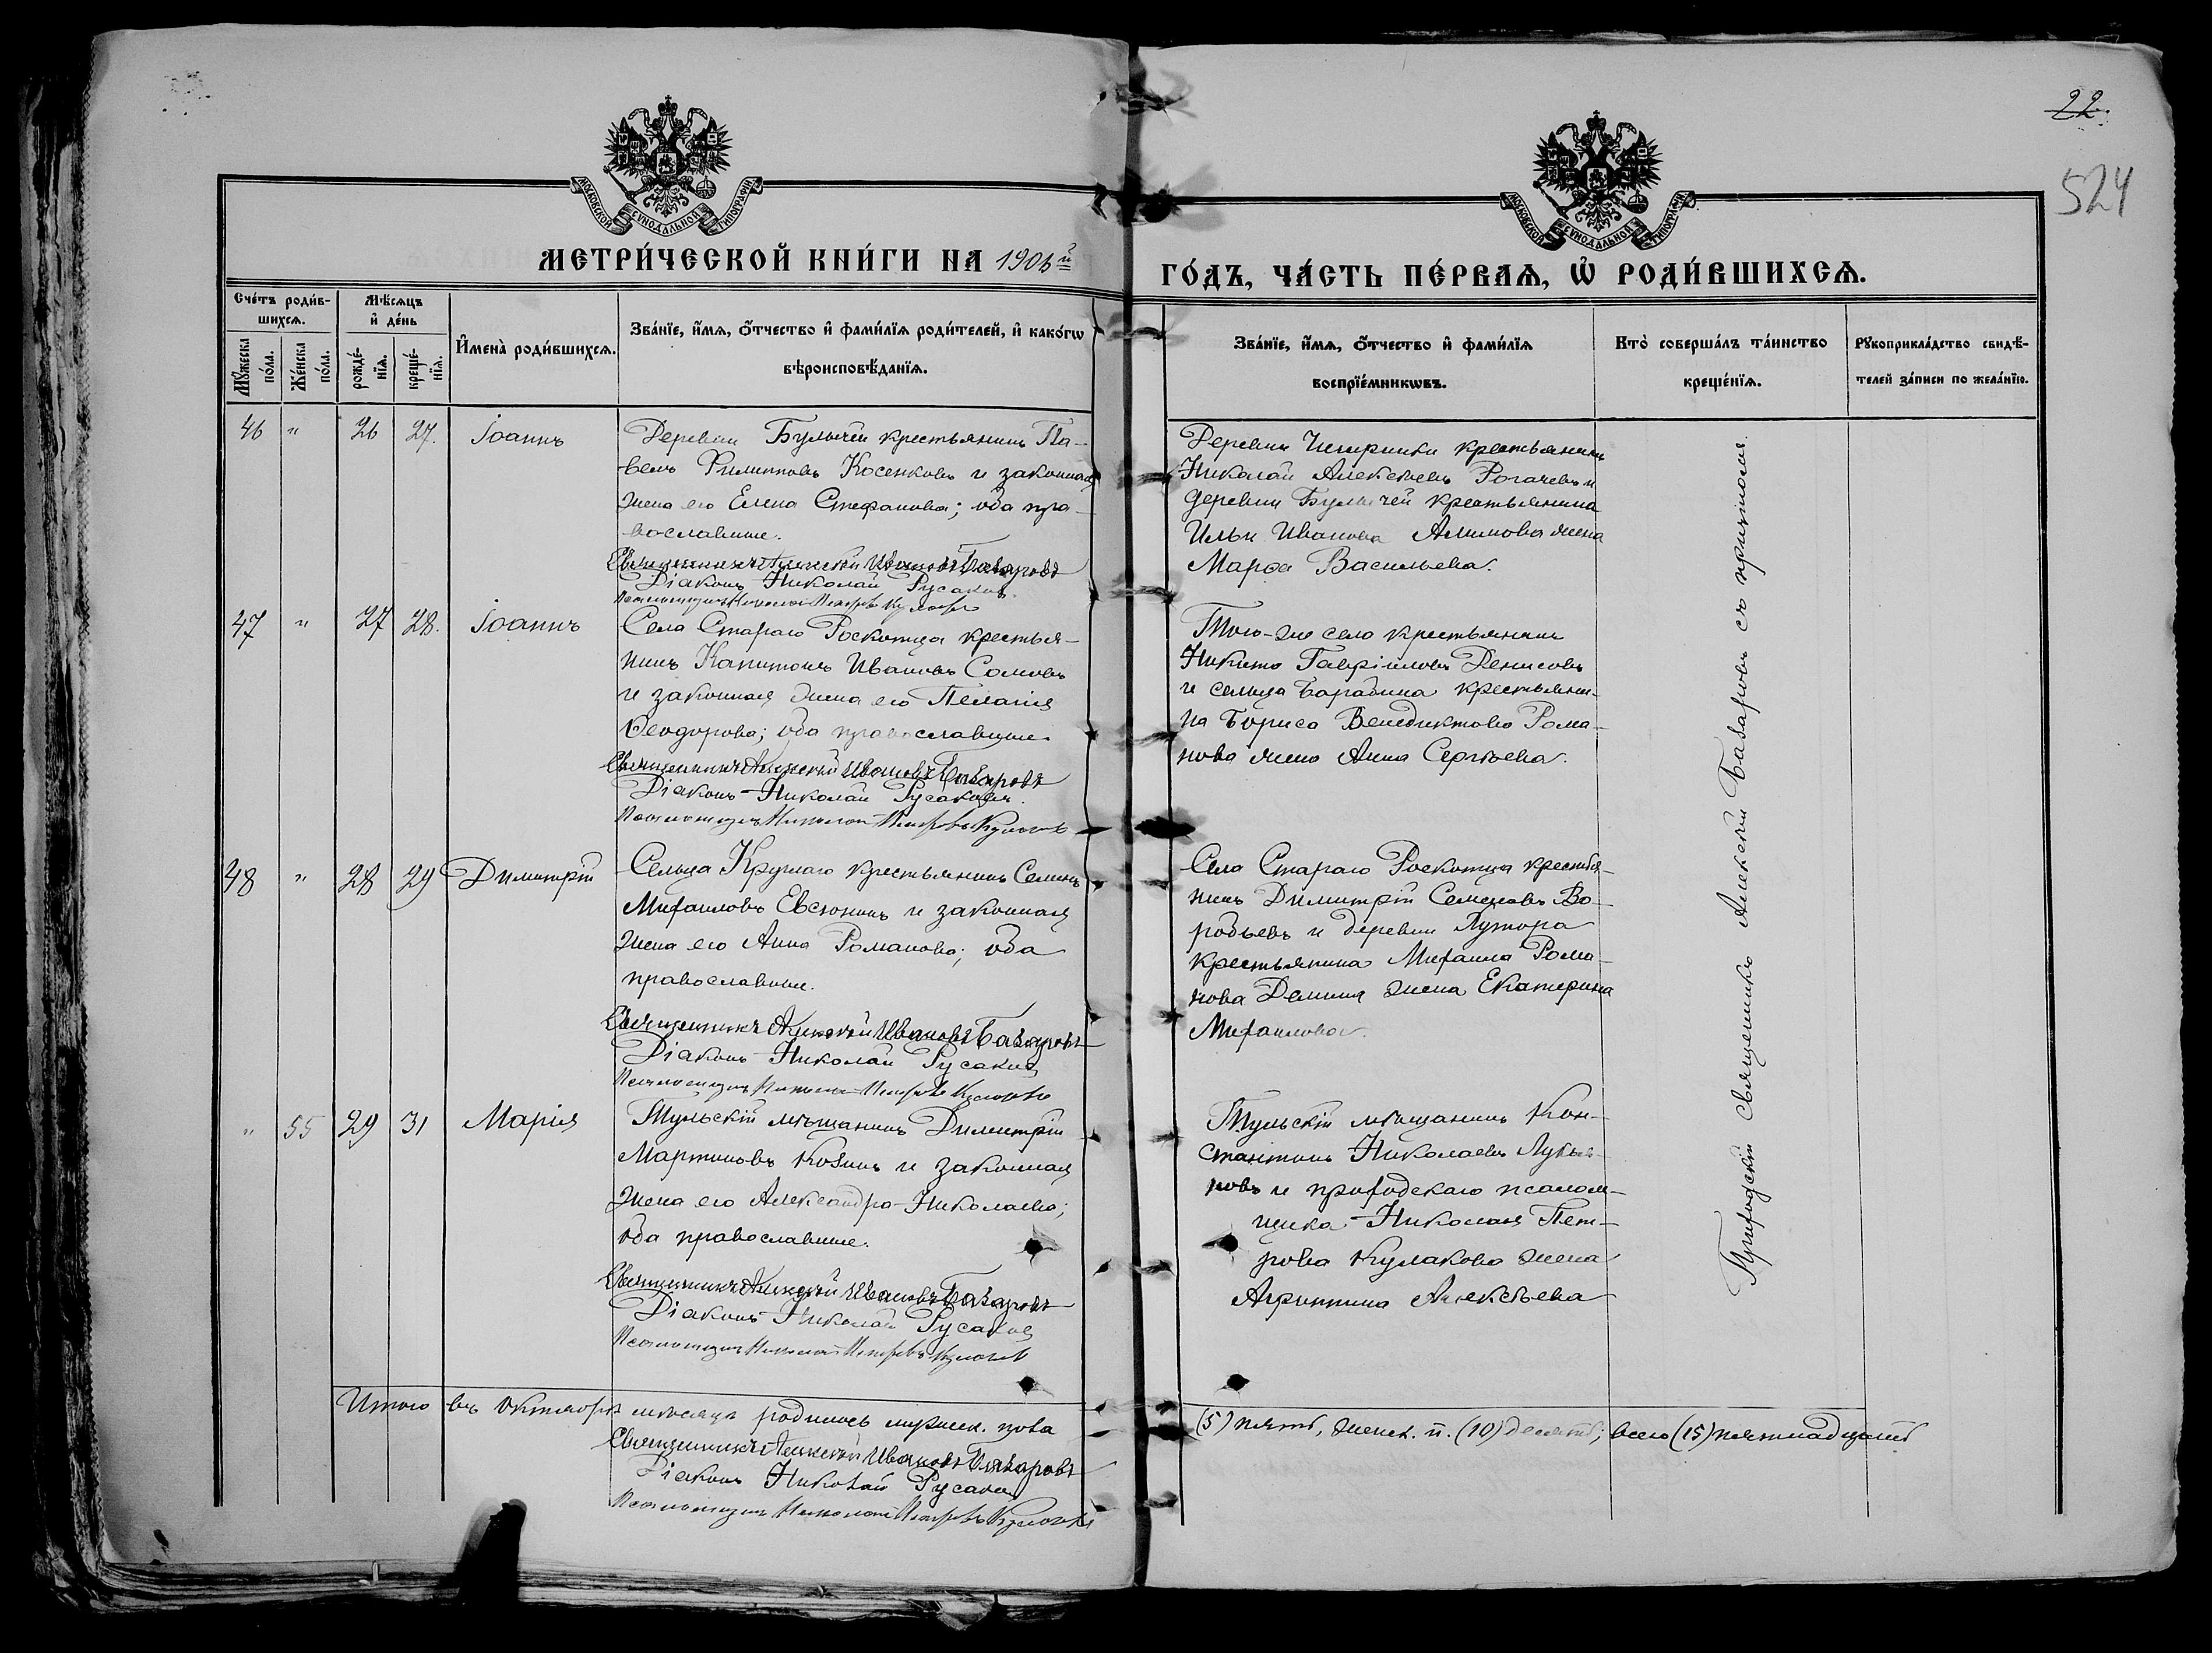 22.
524
МОСКОВСКОЙ СѴНОДАЛЬНОЙ ТИПОГРАФІИ
МОСКОВСКОЙ СѴНОДАЛЬНОЙ ТИПОГРАФІИ
МЕТРИ́ЧЕСКОЙ КНИ́ГИ НА 1906й
ГО́ДЪ, ЧА́СТЬ ПЕ́РВАѦ, Ѡ҆ РОДИ́ВШИХСѦ.
Сче́тъ роди́в-
шихсѧ.
Мꙋ́жеска
по́ла.
Же́нска
по́ла.
Мѣ́сѧцъ
и҆ де́нь
рожде́-
нїѧ.
креще́-
нїѧ.
И҆мена̀ роди́вшихсѧ.
Зва́нїе, и҆́мѧ, ѻ҆́тчество и҆ фами́лїѧ роди́телей, и҆ како́гѡ
вѣроисповѣ́данїѧ.
Зва́нїе, и҆́мѧ, ѻ҆́тчество и҆ фами́лїѧ
воспрїе́мникѡвъ.
Кто̀ соверша́лъ та́инство
креще́нїѧ.
Рꙋкоприкла́дство свидѣ́-
телей за́писи по жела́нїю.
46 " 26 27. Іоаннъ
Деревни Булычей крестьянинъ Па-
велъ Филипповъ Косенковъ и законная
жена его Елена Стефанова; оба пра-
вославные.
Священникъ Алексѣй Ивановъ Базаровъ
Діаконъ Николай Русаковъ.
Псаломщикъ Николай Петровъ Кулаковъ
Деревни крестьянинъ
Николай Алексѣевъ Рогачевъ и
деревни Булычей крестьянина
Ильи Иванова Алимова жена
Марѳа Васильева.
47 " 27 28. Іоаннъ
Села Стараго Роскотца крестья-
нинъ Капитонъ Ивановъ Сомовъ
и законная жена его Пелагія
Ѳеодорова; оба православные.
Священникъ Алексѣй Ивановъ Базаровъ
Діаконъ Николай Русаковъ.
Псаломщикъ Николай Петровъ Кулаковъ
Того-же села крестьянинъ
Никита Гавріиловъ Денисовъ
и сельца Барабина крестьяни-
на Бориса Венедиктова Рома-
нова жена Анна Сергѣева.
48 " 28 29 Димитрій
Сельца Круглаго крестьянинъ Семенъ
Михаиловъ Евсюнинъ и законная
жена его Анна Романова; оба
православные.
Священникъ Алексѣй Ивановъ Базаровъ
Діаконъ Николай Русаковъ
Псаломщикъ Николай Петровъ Кулаковъ
Села Стараго Роскотца крестья-
нинъ Димитрій Семеновъ Во-
робьевъ и деревни Хутора
крестьянина Михаила Рома-
нова Демина жена Екатерина
Михаилова.
" 55 29 31 Марія
Тульскій мѣщанинъ Димитрій
Мартиновъ Козинъ и законная
жена его Александра Николаева;
оба православные.
Священникъ Алексѣй Ивановъ Базаровъ
Діаконъ Николай Русаковъ
Псаломщикъ Николай Петровъ Кулаковъ
Тульскій мѣщанинъ Кон-
стантинъ Николаевъ
и приходскаго псалом-
щика Николая Пет-
рова Кулакова жена
Агрипина Алексѣева
Приходскій священникъ Алексѣй Базаровъ съ причтомъ.
Итого въ октябрѣ мѣсяцѣ родилось мужеск. пола
(5) пять, женск. п. (10) десять; всего (15) пятнадцать
Священникъ Алексѣй Ивановъ Базаровъ
Діаконъ Николай Русаковъ
Псаломщикъ Николай Петровъ Кулаковъ